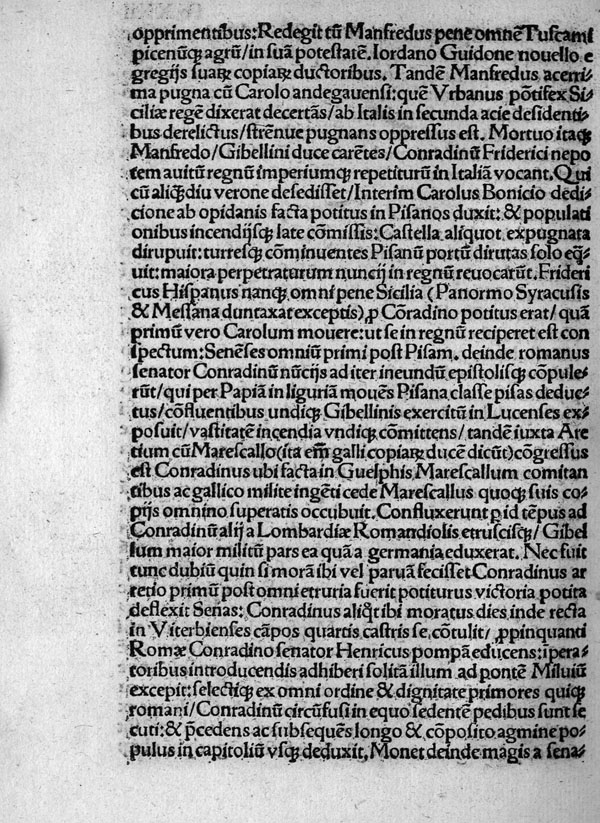 opprimentibus: Redegit tū Manfredus pene omnē Tuscam/
picenūq; agrū/in suā potestatē. Iordano Guidone nouello e
gregijs suaꝝ copiaꝝ ductoribus. Tandē Manfredus acerri
ma pugna cū Carolo andegauensi: quē Vrbanus pōtifex Si/
ciliæ regē dixerat decertās/ab Italis in secunda acie desidenti/
bus derelictus/strēnue pugnans oppressus est. Mortuo itaq;
Manfredo/Gibellini duce carētes/Conradinū Friderici nepo
tem auitū regnū imperiumq; repetiturū in Italiā vocant. Qui
cū aliq̄diu verone desedisset/Interim Carolus Bonicio dedi/
cione ab opidanis facta potitus in Pisanos duxit: & populati
onibus incendijsq; late cōmissis: Castella aliquot expugnata
dirupuit: turresq; cōminuentes Pisanū portū dirutas solo eq̄/
uit: maiora perpetraturum nuncij in regnū reuocarūt. Frideri
cus Hispanus nanq; omni pene Sicilia (Panormo Syracusis
& Messana duntaxat exceptis)ꝓ Cōradino potitus erat/quā
primū vero Carolum mouere: ut se in regnū reciperet est con
spectum: Senēses omniū primi post Pisam. deinde romanus
senator Conradinū nūcijs ad iter ineundū epistolisq; cōpule/
rūt/qui per Papiā in liguriā mouēs Pisana classe pisas deduc/
tus/cōfluentibus undiq; Gibellinis exercitū in Lucenses ex/
posuit/vastitatē incendia vndiq; cōmittens/tandē iuxta Are
tium cū Marescallo(ita em̄ galli copiaꝝ ducē dicūt)cōgressus
est Conradinus ubi facta in Guelphis Marescallum comitan
tibus ac gallico milite ingēti cede Marescallus quoq; suis co/
pijs omnino superatis occubuit. Confluxerunt ꝑ id tēpus ad
Conradinū alij a Lombardiæ Romandiolis etruscisq;/Gibel
lum maior militū pars ea quā a germania eduxerat. Nec fuit
tunc dubiū quin si morā ibi vel paruā fecisset Conradinus ar
retio primū post omni etruria fuerit potiturus victoria potita
deflexit Senas: Conradinus aliq̄t ibi moratus dies inde recta
in Viterbienses cāpos quartis castris se cōtulit/ꝓpinquanti
Romæ Conradino senator Henricus pompā educens: īpera/
toribus introducendis adhiberi solitā illum ad pontē Miluiū
excepit: selectiq; ex omni ordine & dignitate primores quiq;
romani/Conradinū circūfusi in equo sedentē pedibus sunt se
cuti: & p̄cedens ac subsequēs longo & cōposito agmine po/
pulus in capitoliū vsq; deduxit, Monet deinde magis a sena/